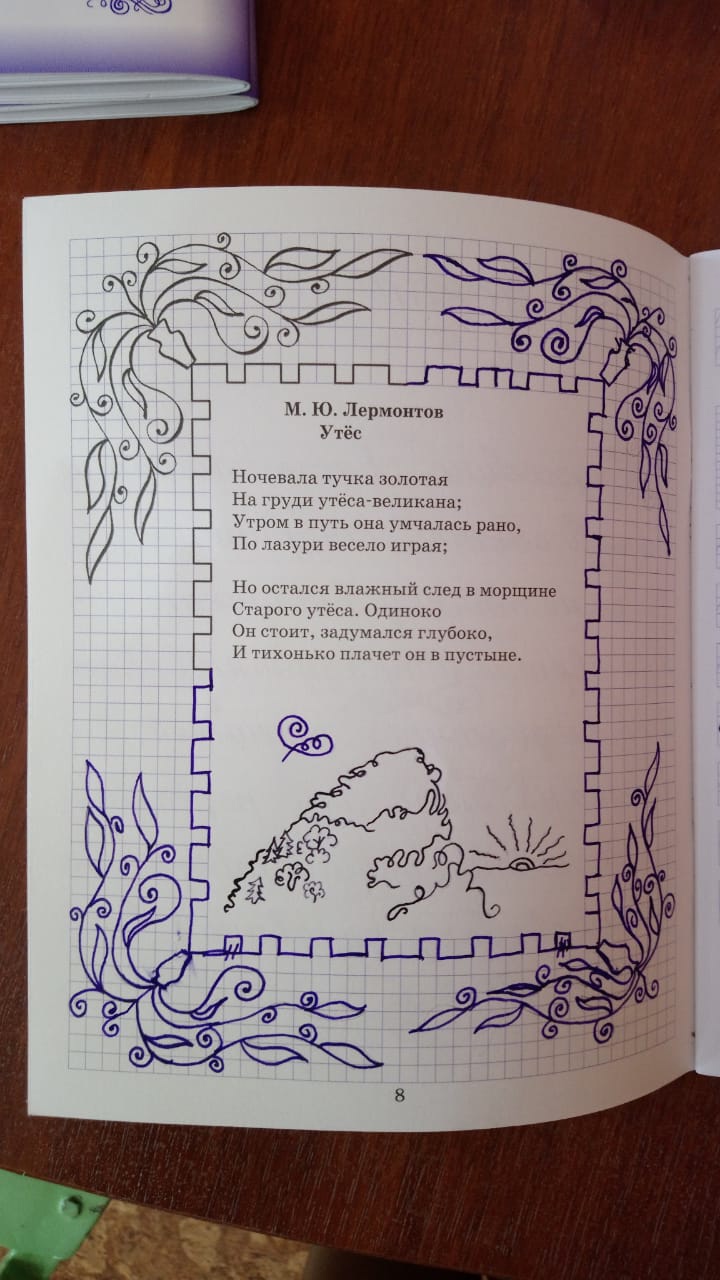 М. Ю. Лермонтов
Утёс
Ночевала тучка золотая
На груди утёса-великана;
Утром в путь она умчалась рано,
По лазури весело играя;
Но остался влажный след в морщине
Старого утёса. Одиноко
Он стоит, задумался глубоко,
И тихонько плачет он в пустыне.
8